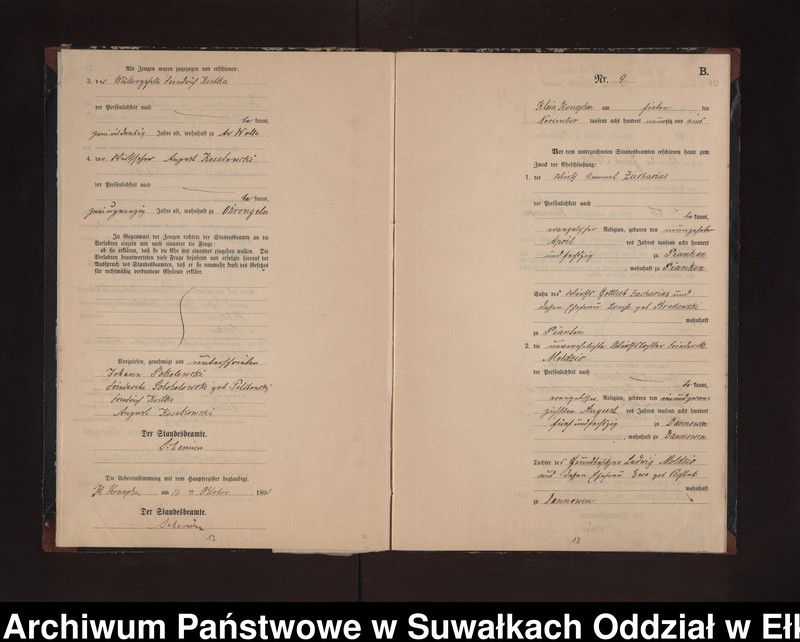 Als Zeugen waren zugezogen und erschienen:
3. der Müllergeselle Friedrich Kostka
der Persönlichkeit nach
be kannt,
zweiunddreißig Jahre alt, wohnhaft zu
4. der Wirthssohn August Kosakowski
der Persönlichkeit nach
be kannt,
Jahre alt, wohnhaft zu Okrongeln
In Gegenwart der Zeugen richtete der Standesbeamte an die
Verlobten einzeln und nach einander die Frage:
ob sie erklären, daß sie die Ehe mit einander eingehen wollen. Die
Verlobten beantworteten diese Frage bejahend und erfolgte hierauf der
Ausspruch des Standesbeamten, daß er sie nunmehr kraft des Gesetzes
für rechtmäßig verbundene Eheleute erkläre.
Vorgelesen, genehmigt und unterschrieben
Johann Sokolowski
Friederike Sokolowski geb
Friedrich Kostka
August Kosakowski
Der Standesbeamte.
Die Uebereinstimmung mit dem Hauptregister beglaubigt.
Kl Konopken am Oktober 1891
Der Standesbeamte.
17
B.
Nr. 9
Klein Konopken am sieben ten
November tausend acht hundert neunzig und eins
Vor dem unterzeichneten Standesbeamten erschienen heute zum
Zweck der Eheschließung:
1. der Wirth Samuel Zacharias
der Persönlichkeit nach
be kannt,
evangelischer Religion, geboren den
April des Jahres tausend acht hundert
und sechszig zu Pianken
, wohnhaft zu Pianken
Sohn des Wirths Gottlieb Zacharias und
dessen Ehefrau Louise geb Brodowski
wohnhaft
zu Pianken
2. die unverehelichte Wirthstochter Friederike
Moldzio
der Persönlichkeit nach
be kannt,
evangelischer Religion, geboren den einundzwan-
zigsten August des Jahres tausend acht hundert
fünf und sechszig zu Dannowen
, wohnhaft zu Dannowen
Tochter des Grundbesitzers Ludwig Moldzio
und dessen Ehefrau Ewa geb
wohnhaft
zu Dannowen
18
Archiwum Państwowe w Suwałkach Oddział w Ełk